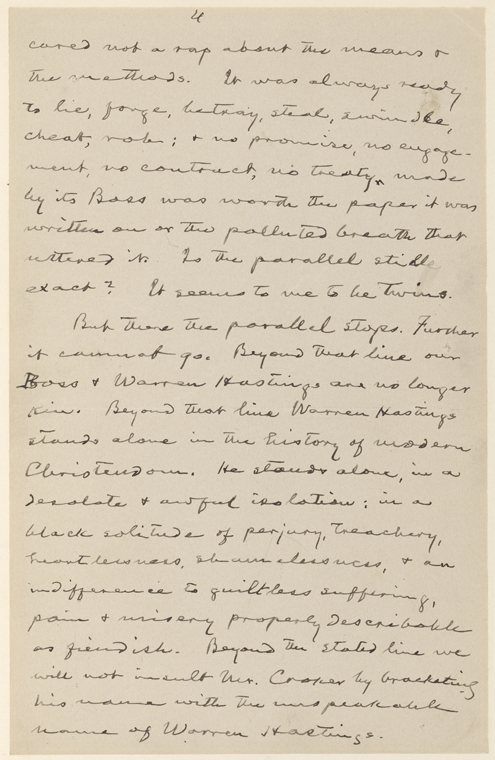 4
cared not a rap about the means &
the methods. It was always ready
to lie, forge, betray, steal, swindle,
cheat, rob; & no promise, no engage-
ment, no contract, no treaty, made
by its Boss was worth the paper it was
written on or the polluted breath that
uttered it. Is the parallel still
exact? It seems to me to be twins.
But there the parallel stops. Further
it cannot go. Beyond that line our
Boss & Warren Hastings are no longer
kin. Beyond that line Warren Hastings
stands alone in the history of modern
Christendom. He stands alone, in a
desolate & awful isolation; in a
black solitude of perjury, treachery,
heartlessness, shamelessness, & an
indifference to guiltless suffering,
pain & misery properly describable
as fiendish. Beyond the stated line we
will not insult Mr. Croker by bracketing
his name with the unspeakable
name of Warren Hastings.